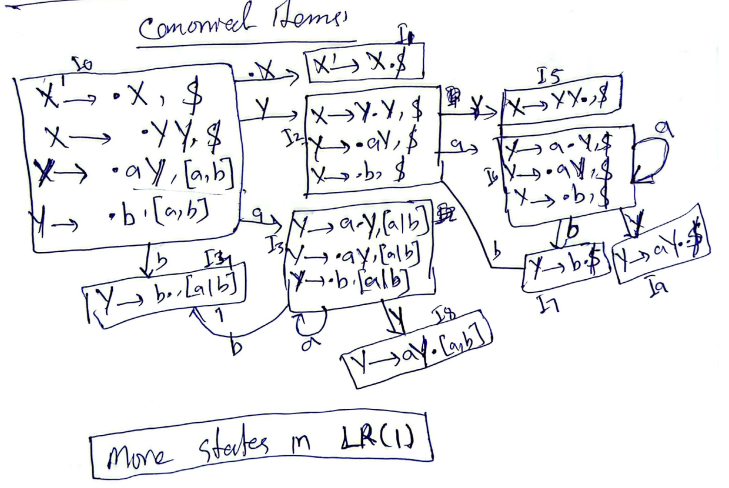 Canonical Items
I0
X' → ·X, $
X → ·YY, $
Y → ·aY, [a,b]
Y → ·b, [a,b]
·X
I1
X' → X·$
Y
I2
X → Y·Y, $
Y → ·aY, $
Y → ·b, $
Y
I5
X → YY·, $
a
I6
Y → a·Y, $
Y → ·aY, $
Y → ·b, $
a
b
Y
b
Y → b·$
I7
Y → aY·$
I9
a
I3
Y → a·Y, [a|b]
Y → ·aY, [a|b]
Y → ·b, [a|b]
b
Y → b·, [a|b]
b
a
Y
I8
Y → aY·[a,b]
More states in LR(1)